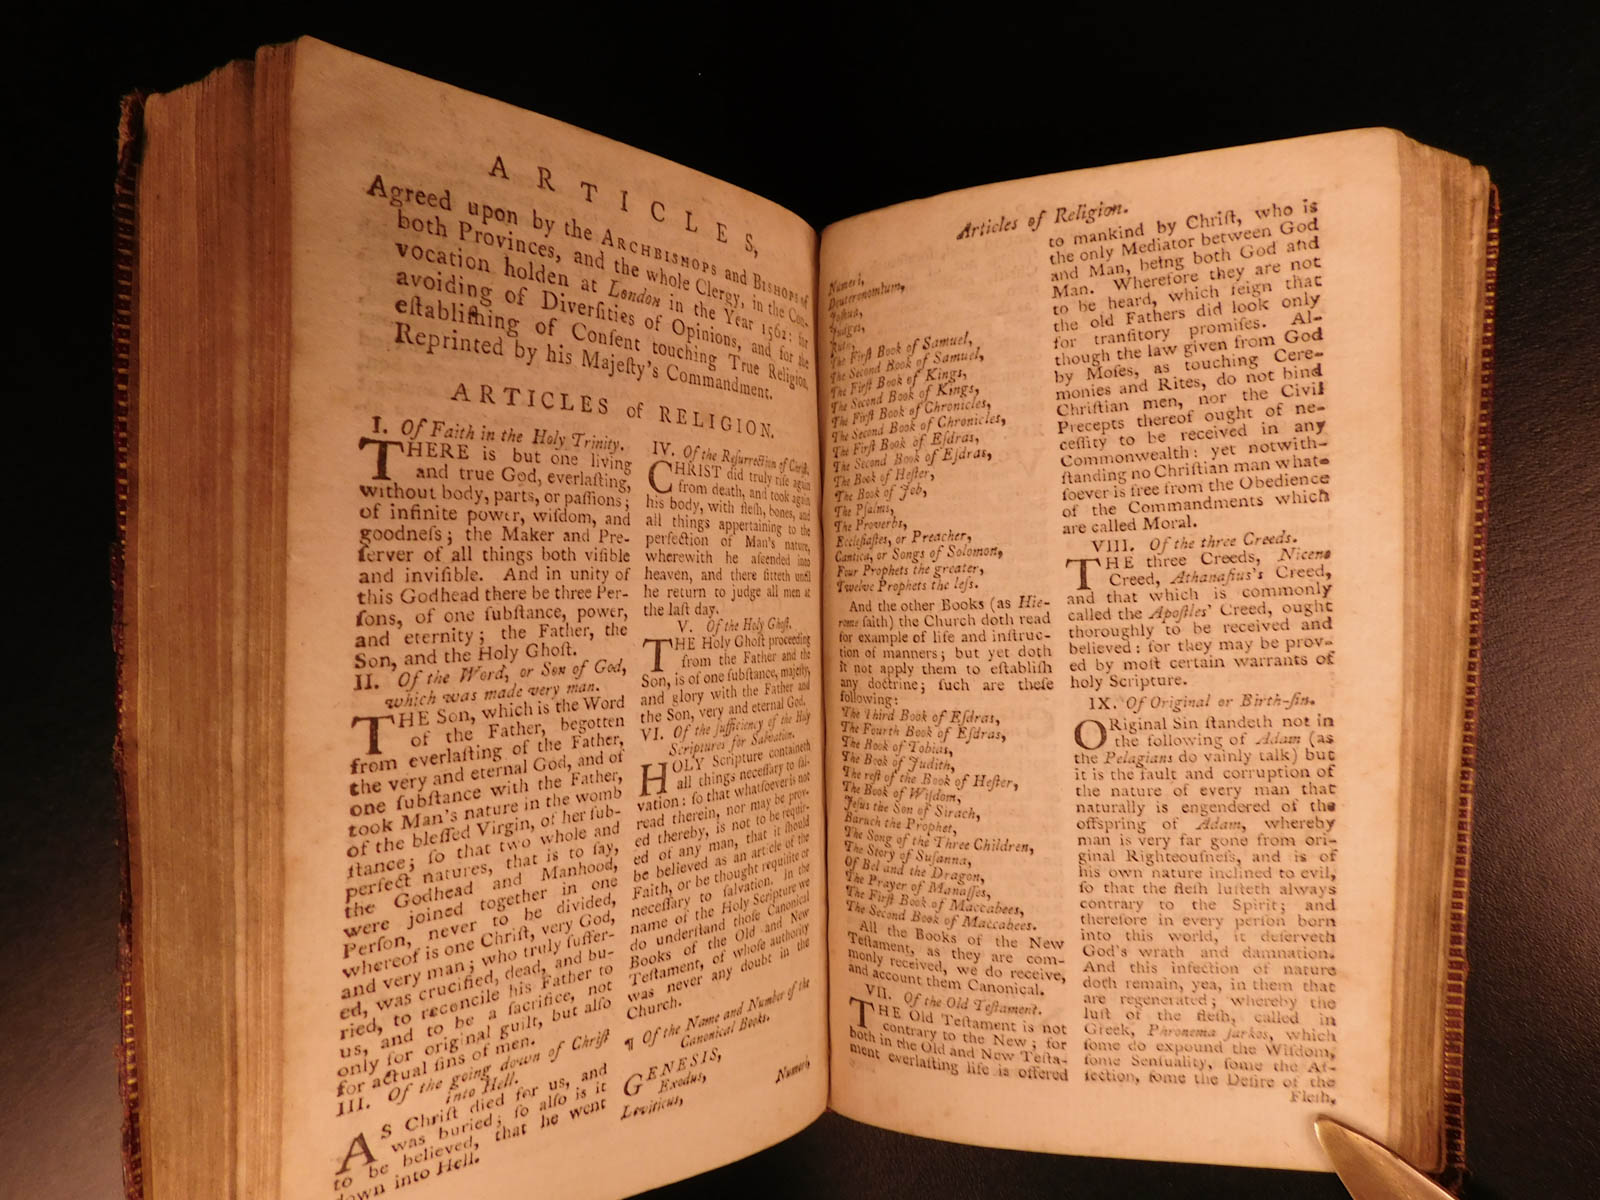 ARTICLES,
Agreed upon by the ARCHBISHOPS and BISHOPS of
both Provinces, and the whole Clergy, in the Con-
vocation holden at London in the Year 1562: for
avoiding of Diverſities of Opinions, and for the
eſtabliſhing of Conſent touching True Religion,
Reprinted by his Majeſty's Commandment.
ARTICLES of RELIGION.
I. Of Faith in the Holy Trinity.
THERE is but one living
and true God, everlaſting,
without body, parts, or paſſions;
of infinite power, wiſdom, and
goodneſs; the Maker and Pre-
ſerver of all things both viſible
and inviſible. And in unity of
this Godhead there be three Per-
ſons, of one ſubſtance, power,
and eternity; the Father, the
Son, and the Holy Ghoſt.
II. Of the Word, or Son of God,
which was made very man.
THE Son, which is the Word
of the Father, begotten
from everlaſting of the Father,
the very and eternal God, and of
one ſubſtance with the Father,
took Man's nature in the womb
of the bleſſed Virgin, of her ſub-
ſtance; ſo that two whole and
perfect natures, that is to ſay,
the Godhead and Manhood,
were joined together in one
Perſon, never to be divided,
whereof is one Chriſt, very God,
and very man; who truly ſuffer-
ed, was crucified, dead, and bu-
ried, to reconcile his Father to
us, and to be a ſacrifice, not
only for original guilt, but alſo
for actual ſins of men.
III. Of the going down of Chriſt
into Hell.
AS Chriſt died for us, and
was buried; ſo alſo is it
to be believed, that he went
down into Hell.
IV. Of the Reſurrection of Chriſt.
CHRIST did truly riſe again
from death, and took again
his body, with fleſh, bones, and
all things appertaining to the
perfection of Man's nature,
wherewith he aſcended into
heaven, and there ſitteth until
he return to judge all men at
the laſt day.
V. Of the Holy Ghoſt.
THE Holy Ghoſt proceeding
from the Father and the
Son, is of one ſubſtance, majeſty,
and glory with the Father and
the Son, very and eternal God.
VI. Of the ſufficiency of the Holy
Scriptures for Salvation.
HOLY Scripture containeth
all things neceſſary to ſal-
vation: ſo that whatſoever is not
read therein, nor may be prov-
ed thereby, is not to be requir-
ed of any man, that it ſhould
be believed as an article of the
Faith, or be thought requiſite or
neceſſary to ſalvation. In the
name of the Holy Scripture we
do underſtand thoſe Canonical
Books of the Old and New
Teſtament, of whoſe authority
was never any doubt in the
Church.
¶ Of the Name and Number of the
Canonical Books.
GENESIS,
Exodus,
Leviticus,
Numeri,
Articles of Religion.
Numeri,
Deuteronomium,
Joſhua,
Judges,
Ruth,
The Firſt Book of Samuel,
The Second Book of Samuel,
The Firſt Book of Kings,
The Second Book of Kings,
The Firſt Book of Chronicles,
The Second Book of Chronicles,
The Firſt Book of Eſdras,
The Second Book of Eſdras,
The Book of Heſter,
The Book of Job,
The Pſalms,
The Proverbs,
Eccleſiaſtes, or Preacher,
Cantica, or Songs of Solomon,
Four Prophets the greater,
Twelve Prophets the leſs.
And the other Books (as Hie-
rome ſaith) the Church doth read
for example of life and inſtruc-
tion of manners; but yet doth
it not apply them to eſtabliſh
any doctrine; ſuch are theſe
following:
The Third Book of Eſdras,
The Fourth Book of Eſdras,
The Book of Tobias,
The Book of Judith,
The reſt of the Book of Heſter,
The Book of Wiſdom,
Jeſus the Son of Sirach,
Baruch the Prophet,
The Song of the Three Children,
The Story of Suſanna,
Of Bel and the Dragon,
The Prayer of Manaſſes,
The Firſt Book of Maccabees,
The Second Book of Maccabees.
All the Books of the New
Teſtament, as they are com-
monly received, we do receive,
and account them Canonical.
VII. Of the Old Teſtament.
THE Old Teſtament is not
contrary to the New; for
both in the Old and New Teſta-
ment everlaſting life is offered
to mankind by Chriſt, who is
the only Mediator between God
and Man, being both God and
Man. Wherefore they are not
to be heard, which feign that
the old Fathers did look only
for tranſitory promiſes. Al-
though the law given from God
by Moſes, as touching Cere-
monies and Rites, do not bind
Chriſtian men, nor the Civil
Precepts thereof ought of ne-
ceſſity to be received in any
Commonwealth: yet notwith-
ſtanding no Chriſtian man what-
ſoever is free from the Obedience
of the Commandments which
are called Moral.
VIII. Of the three Creeds.
THE three Creeds, Nicene
Creed, Athanaſius's Creed,
and that which is commonly
called the Apoſtles' Creed, ought
thoroughly to be received and
believed: for they may be prov-
ed by moſt certain warrants of
holy Scripture.
IX. Of Original or Birth-ſin.
ORiginal Sin ſtandeth not in
the following of Adam (as
the Pelagians do vainly talk) but
it is the fault and corruption of
the nature of every man that
naturally is engendered of the
offspring of Adam, whereby
man is very far gone from ori-
ginal Righteouſneſs, and is of
his own nature inclined to evil,
ſo that the fleſh luſteth always
contrary to the Spirit; and
therefore in every perſon born
into this world, it deſerveth
God's wrath and damnation.
And this infection of nature
doth remain, yea, in them that
are regenerated; whereby the
luſt of the fleſh, called in
Greek, Phronema ſarkos, which
ſome do expound the Wiſdom,
ſome Senſuality, ſome the Af-
fection, ſome the Deſire of the
Fleſh,